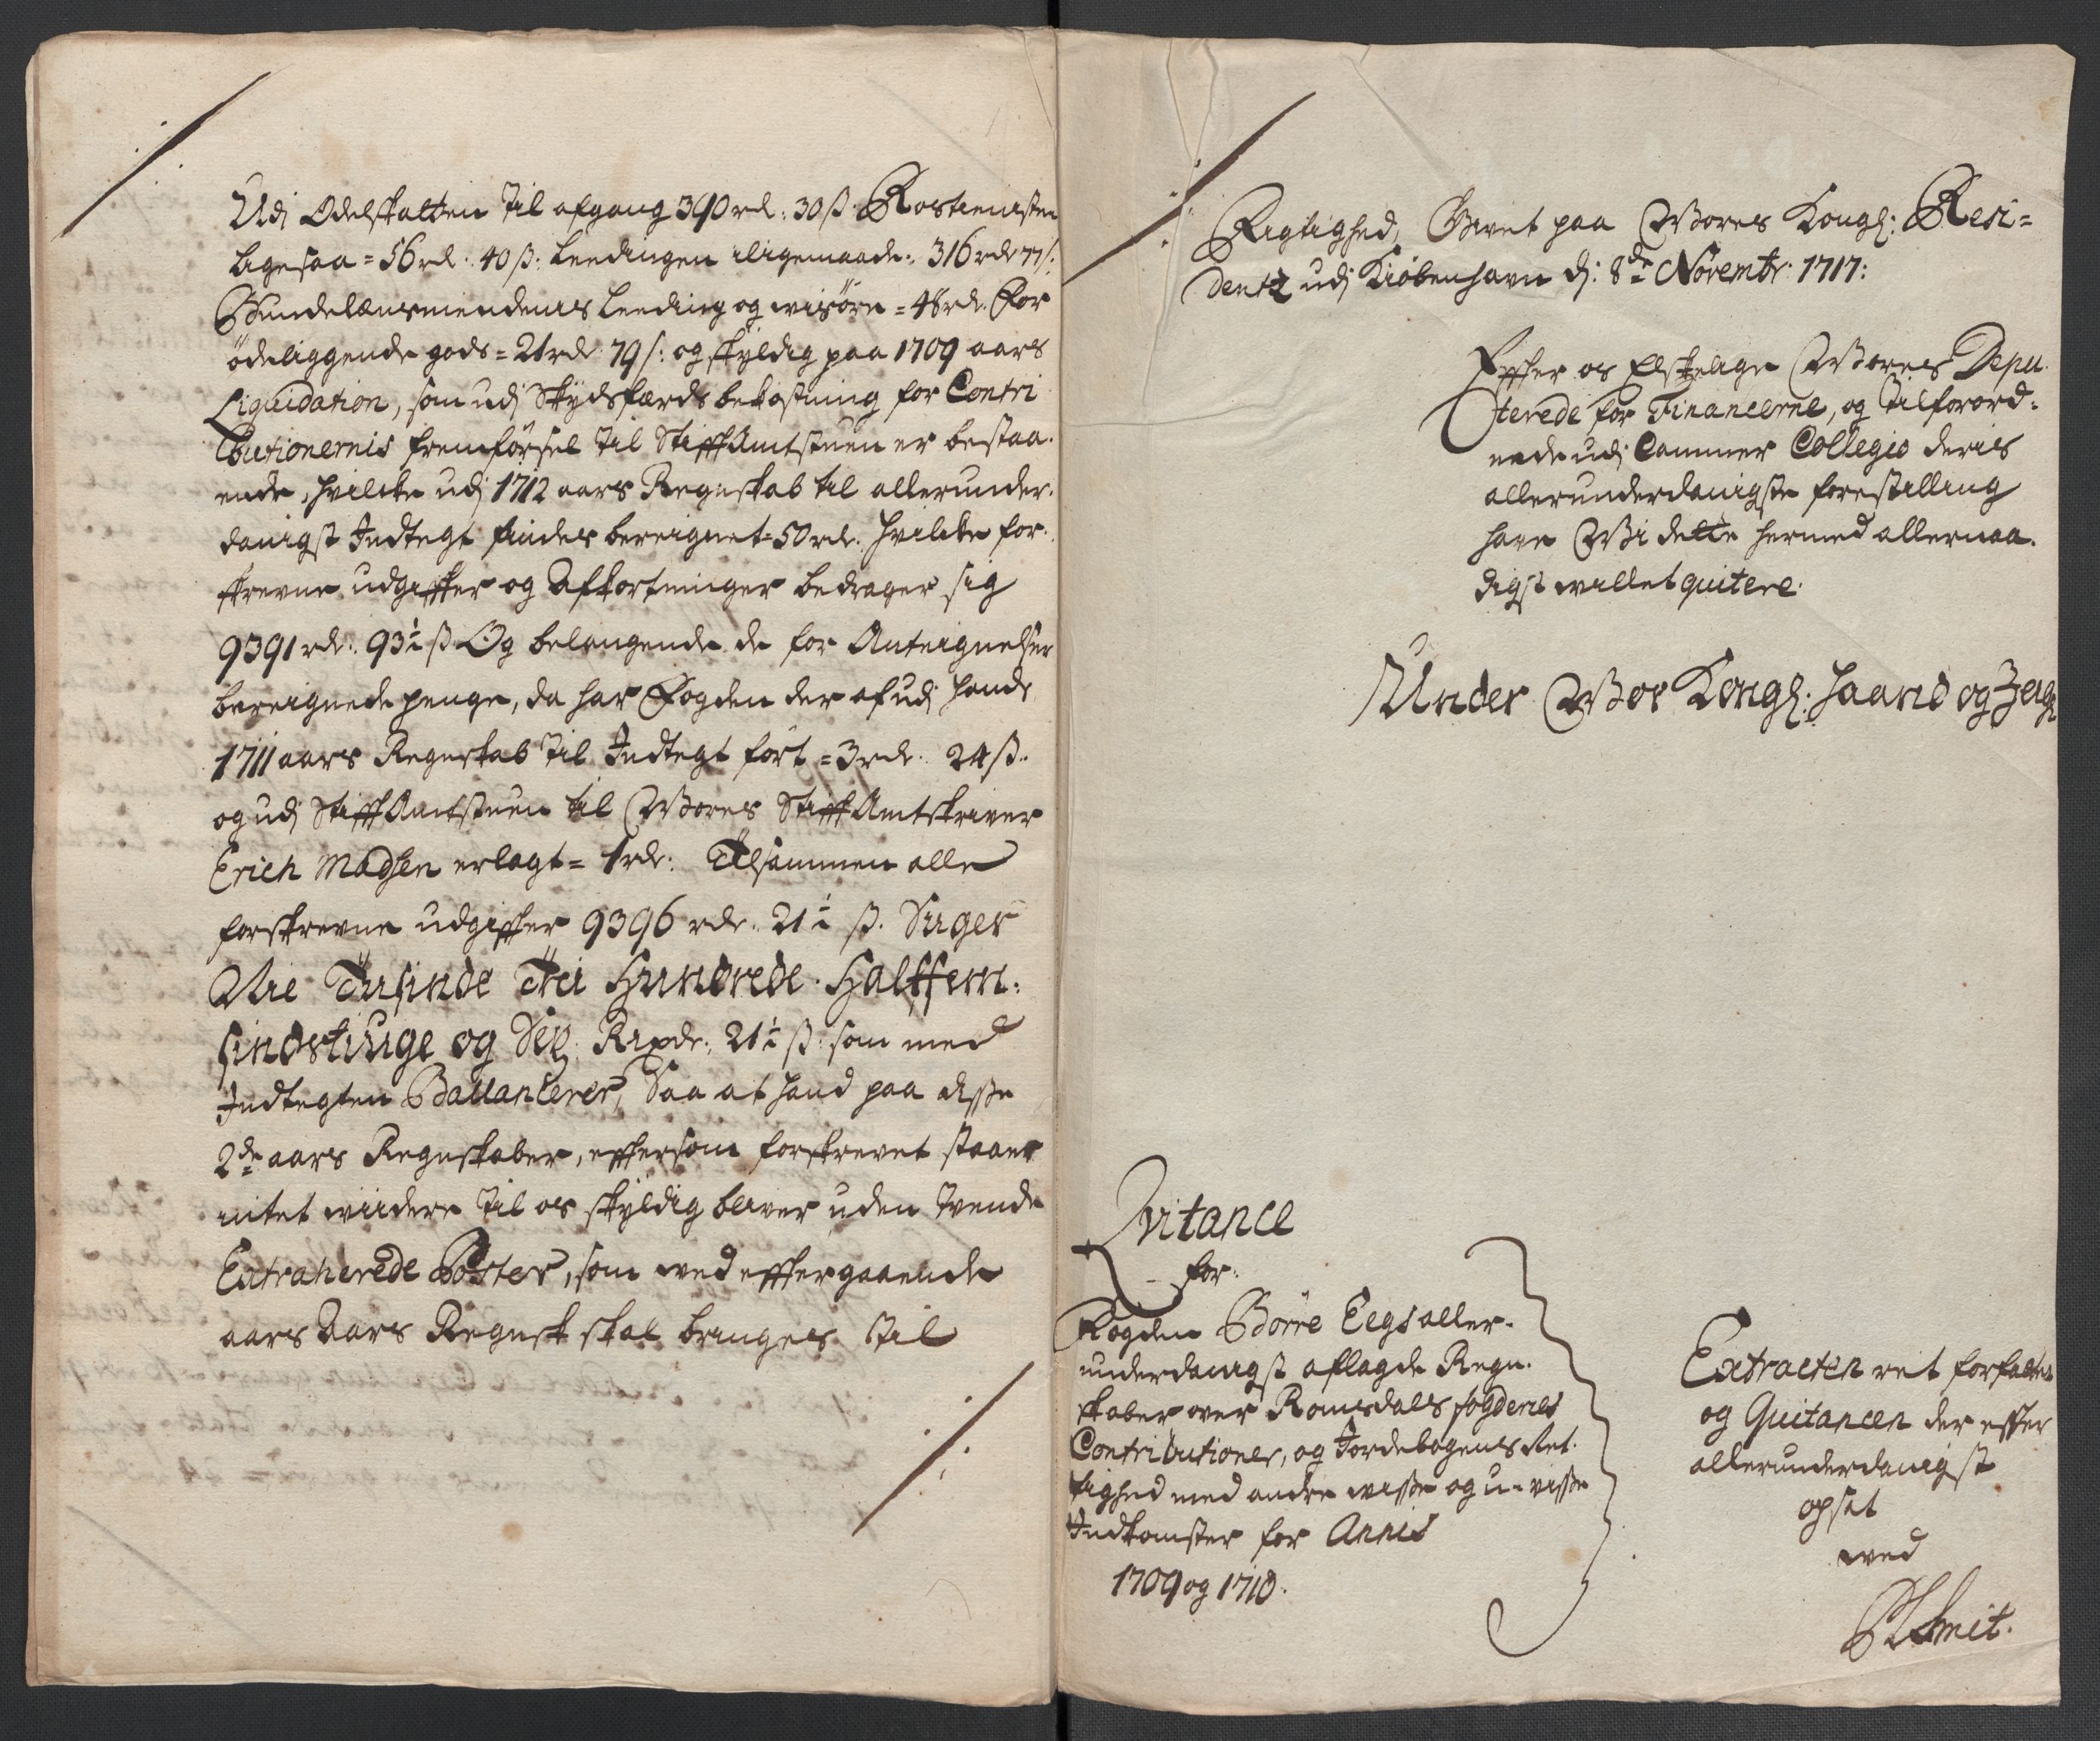 Udj Odelskatten Til afgang 390 rd: 30 ß Rostienisten
ligesaa = 56 rd: 40 ß: Leedingen iligemaade: 316 rdr 77 ß:
Bundelænsmendenis Leeding og wisöre = 48 rd. For
ödeliggende gods = 21 rdr 79 ß: og skyldig paa 1709 aars
Liquidation, som udj Skydsfærds bekostning for Contri
butionernis fremförsel til StifftAmtstuen er bestaa-
ende, hvilcke udj 1712 aars Regnskab til allerunder-
danigst Indtegt findes bereignet = 50 rdr. hvilcke for-
skrevne udgiffter og Afkortninger bedrager sig
9391 rdr: 93½ ß Og belangende de for Anteignelser
bereignede penge, da har Fogden der af udj hands
1711 aars Regnskab Til Indtegt fört = 3 rdr. 24 ß.
og udj StifftAmtstuen til Wores StifftAmtskriver
Erich Madsen erlagt = 1 rdr: Tilsammen alle
forskrevne udgiffter 9396 rdr: 21½ ß. Siger
Nie Tusinde Trei Hundrede Halffem-
sindstiuge og Sex Rixdr: 21½ ß: som med
Indtegten Ballancerer, Saa at hand paa disse
2de aars Regnskaber, efftersom forskrevet staaer
intet viidere Til os skyldig bliver, uden tvende
Extraherede Poster, som ved efftergaaende
aars Regnsk skal bringes til
Rigtighed, Givet paa Wores Kongl: Resi=
dentz udj Kiøbenhavn dj: 8de Novembr: 1717:
Effter os Elskelige Wores Depu
terede for Financerne, og Tilforord-
nede udj Cammer Collegio deris
allerunderdanigste forestilling
have Wi dette hermed allernaa-
digst willet quitere.
Under Wor Kongl: Haand og Zeigl
Qvitance
for:
Fogden Börre Eegs aller-
underdanigst aflagde Regn-
skaber over Romsdals fogderies
Contributioner, og Jordebogens Ret-
tighed med andre wisse og u-visse
Indkomster for Annis
1709 og 1710.
Extracten ret forfattet
og Quitancen der effter
allerunderdanigst
opsat
ved
Smit.